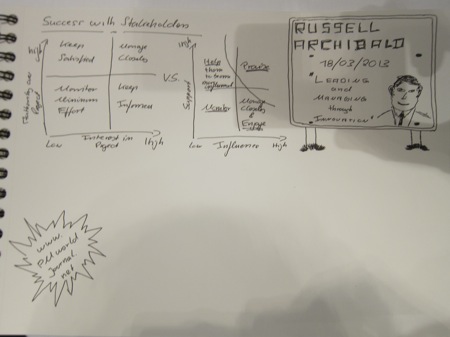 Success with Stakeholders
High
Keep
Satisfied
Manage
Closely
Monitor
Minimum
Effort
Keep
Informed
Low
Interest in
Project
High
VS.
High
Support
Help
them
Praise
Monitor
Manage
Closely
&
Engage
Low
Influence
High
RUSSELL
ARCHIBALD
18/03/2013
"LEADING
and
MANAGING
through
INNOVATION"
www.
PM world
Journal.
net